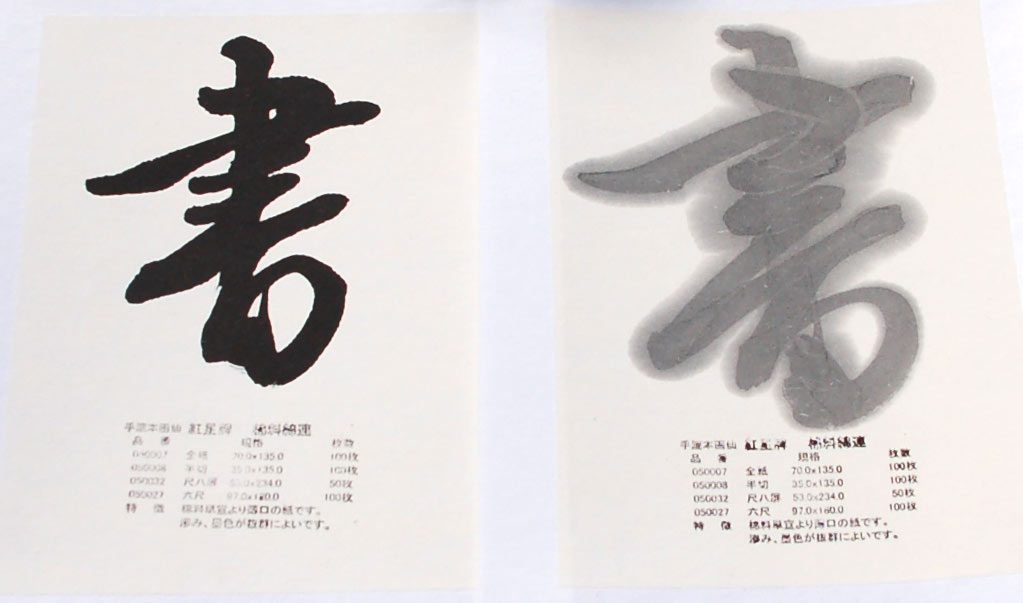 書
手漉本画仙 紅星牌 棉料綿連
品 番 規格 枚数
050007 全紙 70.0×135.0 100枚
050008 半切 35.0×135.0 100枚
050032 尺八屏 53.0×234.0 50枚
050027 六尺 97.0×180.0 100枚
特 徴 棉料単宣より薄口の紙です。
滲み、墨色が抜群によいです。
書
手漉本画仙 紅星牌 棉料綿連
品 番 規格 枚数
050007 全紙 70.0×135.0 100枚
050008 半切 35.0×135.0 100枚
050032 尺八屏 53.0×234.0 50枚
050027 六尺 97.0×180.0 100枚
特 徴 棉料単宣より薄口の紙です。
滲み、墨色が抜群によいです。